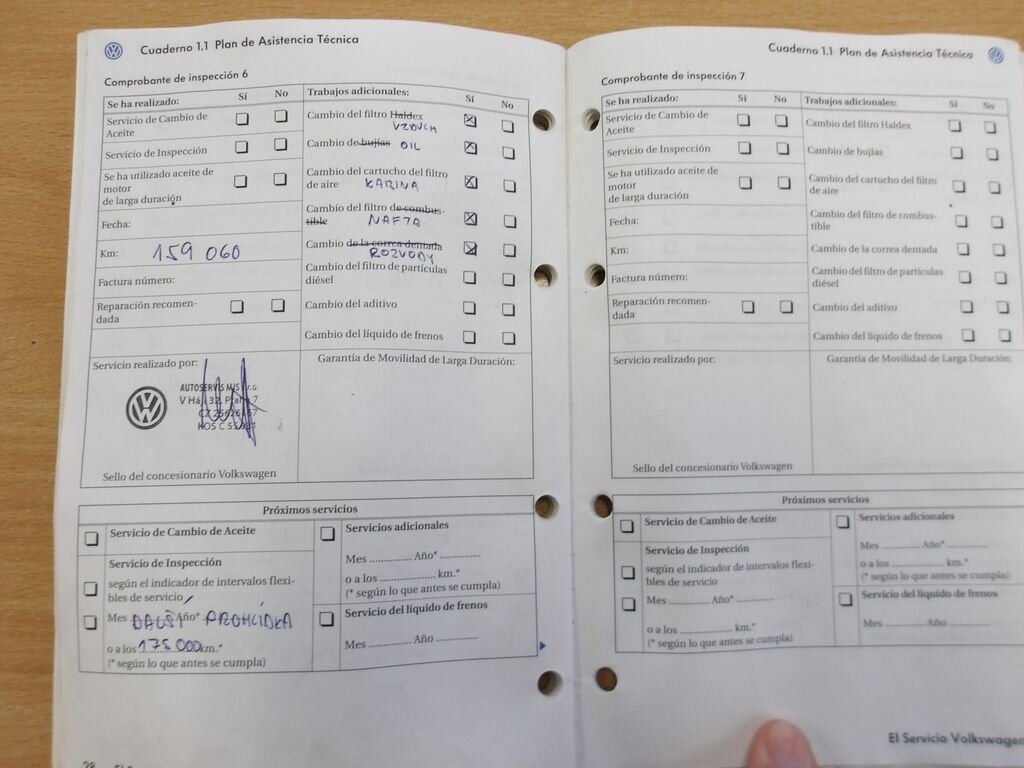 Cuaderno 1.1 Plan de Asistencia Técnica
Comprobante de inspección 6
Se ha realizado: Sí No
Servicio de Cambio de
Aceite
Servicio de Inspección
Se ha utilizado aceite de
motor
de larga duración
Fecha:
Km: 159 060
Factura número:
Reparación recomen-
dada
Trabajos adicionales: Sí No
Cambio del filtro Haldex
VZDUCH
Cambio de bujías OIL
Cambio del cartucho del filtro
de aire KABINA
Cambio del filtro de combus-
tible NAFTA
Cambio de la correa dentada
ROZVODY
Cambio del filtro de partículas
diésel
Cambio del aditivo
Cambio del líquido de frenos
Servicio realizado por:
AUTOSERVIS MJS s.r.o.
V Há
CZ
KOS C
Sello del concesionario Volkswagen
Garantía de Movilidad de Larga Duración:
Próximos servicios
Servicio de Cambio de Aceite
Servicio de Inspección
según el indicador de intervalos flexi-
bles de servicio
Mes Año* DALŠÍ PROHLÍDKA
o a los 175 000 km.*
(* según lo que antes se cumpla)
Servicios adicionales
Mes ............ Año* ............
o a los ............ km.*
(* según lo que antes se cumpla)
Servicio del líquido de frenos
Mes ............ Año ............
28
Cuaderno 1.1 Plan de Asistencia Técnica
Comprobante de inspección 7
Se ha realizado: Sí No
Servicio de Cambio de
Aceite
Servicio de Inspección
Se ha utilizado aceite de
motor
de larga duración
Fecha:
Km:
Factura número:
Reparación recomen-
dada
Trabajos adicionales: Sí No
Cambio del filtro Haldex
Cambio de bujías
Cambio del cartucho del filtro
de aire
Cambio del filtro de combus-
tible
Cambio de la correa dentada
Cambio del filtro de partículas
diésel
Cambio del aditivo
Cambio del líquido de frenos
Servicio realizado por:
Sello del concesionario Volkswagen
Garantía de Movilidad de Larga Duración:
Próximos servicios
Servicio de Cambio de Aceite
Servicio de Inspección
según el indicador de intervalos flexi-
bles de servicio
Mes ............ Año* ............
o a los ............ km.*
(* según lo que antes se cumpla)
Servicios adicionales
Mes ............ Año* ............
o a los ............ km.*
(* según lo que antes se cumpla)
Servicio del líquido de frenos
Mes ............ Año ............
El Servicio Volkswagen